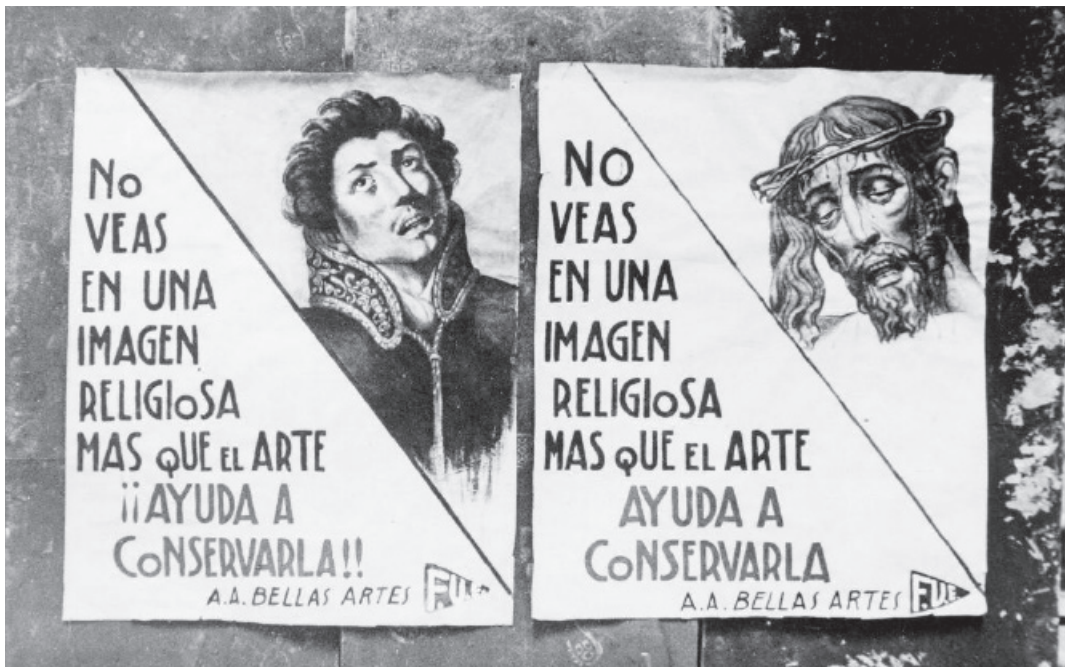 No
VEAS
EN UNA
IMAGEN
RELIGIoSA
MAS QUE EL ARTE
¡¡AYUDA A
CoNSERVARLA!!
A.A. BELLAS ARTES F.U.E.
NO
VEAS
EN UNA
IMAGEN
RELIGIoSA
MAS QUE EL ARTE
AYUDA A
CoNSERVARLA
A.A. BELLAS ARTES F.U.E